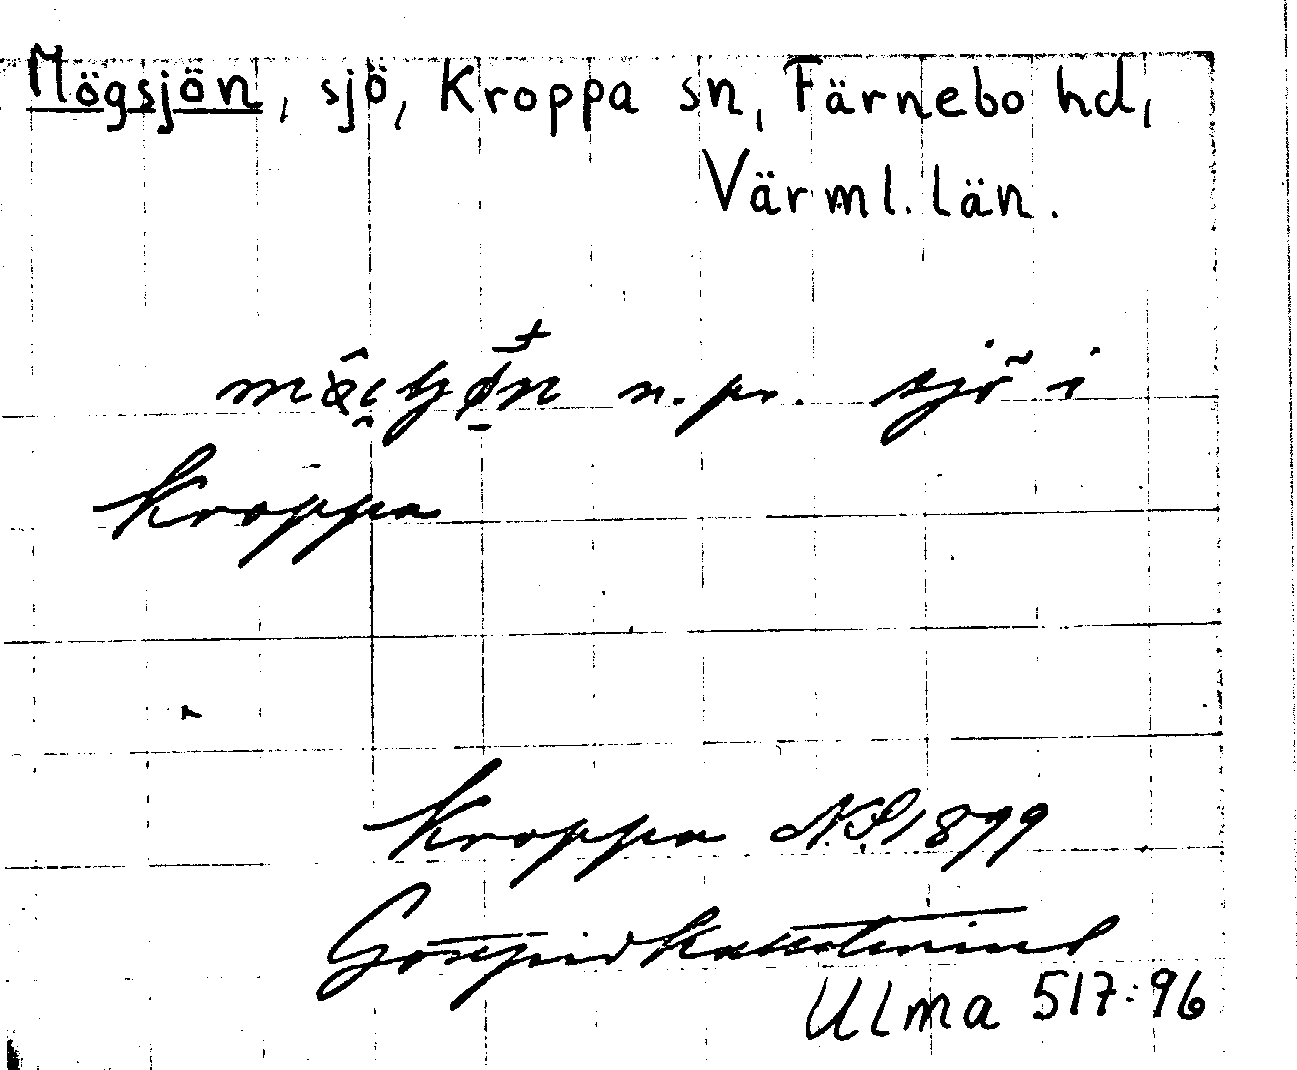 Mögsjön, sjö, Kroppa sn, Färnebo hd,
Värml. län.
n. pr. sjö i
Kroppa
Kroppa N.S. 1899
Ulma 517:96